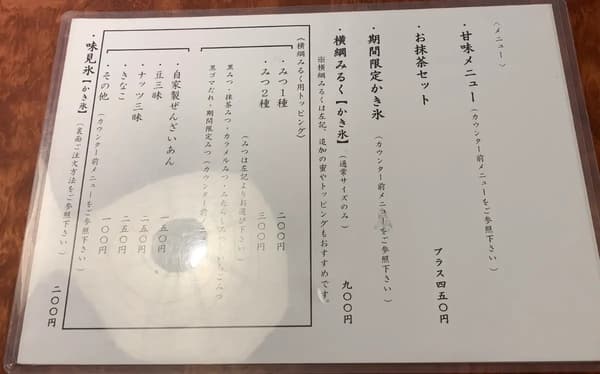 （メニュー）
・甘味メニュー（カウンター前メニューをご参照下さい）
・お抹茶セット　プラス四五〇円
・期間限定かき氷（カウンター前メニューをご参照下さい）
・横綱みるく【かき氷】（通常サイズのみ）　九〇〇円
※横綱みるくは左記、追加の蜜やトッピングもおすすめです。
（横綱みるく用トッピング）
・みつ１種　二〇〇円
・みつ２種　三〇〇円
（みつは左記よりお選び下さい）
黒みつ・抹茶みつ・カラメルみつ・みたらしみつ・いちごみつ
黒ゴマだれ・期間限定みつ（カウンター前
・自家製ぜんざいあん　一五〇円
・豆三昧　二五〇円
・ナッツ三昧　二五〇円
・きなこ　一〇〇円
・その他（カウンター前メニューをご参照下さい）
・味見氷【かき氷】（裏面ご注文方法をご参照下さい）　二〇〇円